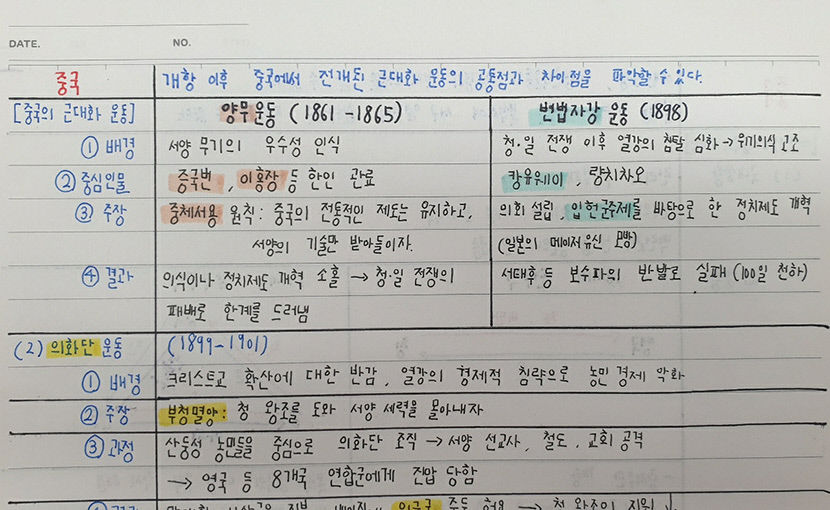 DATE. NO.
중국 개항 이후 중국에서 전개된 근대화 운동의 공통점과 차이점을 파악할 수 있다.
[중국의 근대화 운동] 양무운동 (1861 -1865) 변법자강 운동 (1898)
① 배경 서양 무기의 우수성 인식 청·일 전쟁 이후 열강의 침탈 심화 → 위기의식 고조
② 중심인물 증국번, 이홍장 등 한인 관료 캉유웨이, 량치차오
③ 주장 중체서용 원칙 : 중국의 전통적인 제도는 유지하고, 의회 설립, 입헌군주제를 바탕으로 한 정치제도 개혁
서양의 기술만 받아들이자. (일본의 메이지유신 모방)
④ 결과 의식이나 정치제도 개혁 소홀 → 청·일 전쟁의 서태후 등 보수파의 반발로 실패 (100일 천하)
패배로 한계를 드러냄
(2) 의화단 운동 (1899-1901)
① 배경 크리스트교 확산에 대한 반감, 열강의 형제적 침략으로 농민 경제 악화
② 주장 부청멸양 : 청 왕조를 도와 서양 세력을 몰아내자
③ 과정 산둥성 농민들을 중심으로 의화단 조직 → 서양 선교사, 철도, 교회 공격
→ 영국 등 8개국 연합군에게 진압 당함